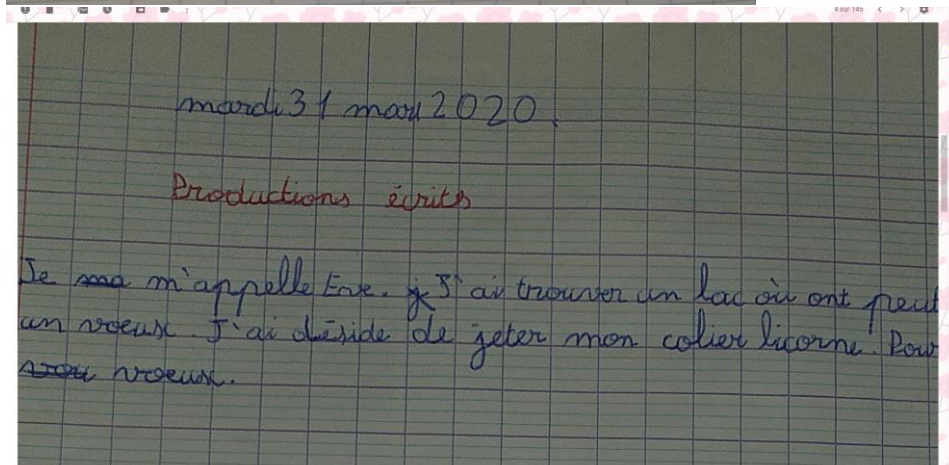 sur 145
mardi 31 mars 2020.
Productions écrits
Je m'appelle Eve. J'ai trouver un lac où ont peut
un voeux. J'ai déside de jeter mon colier licorne. Pour
voeux.